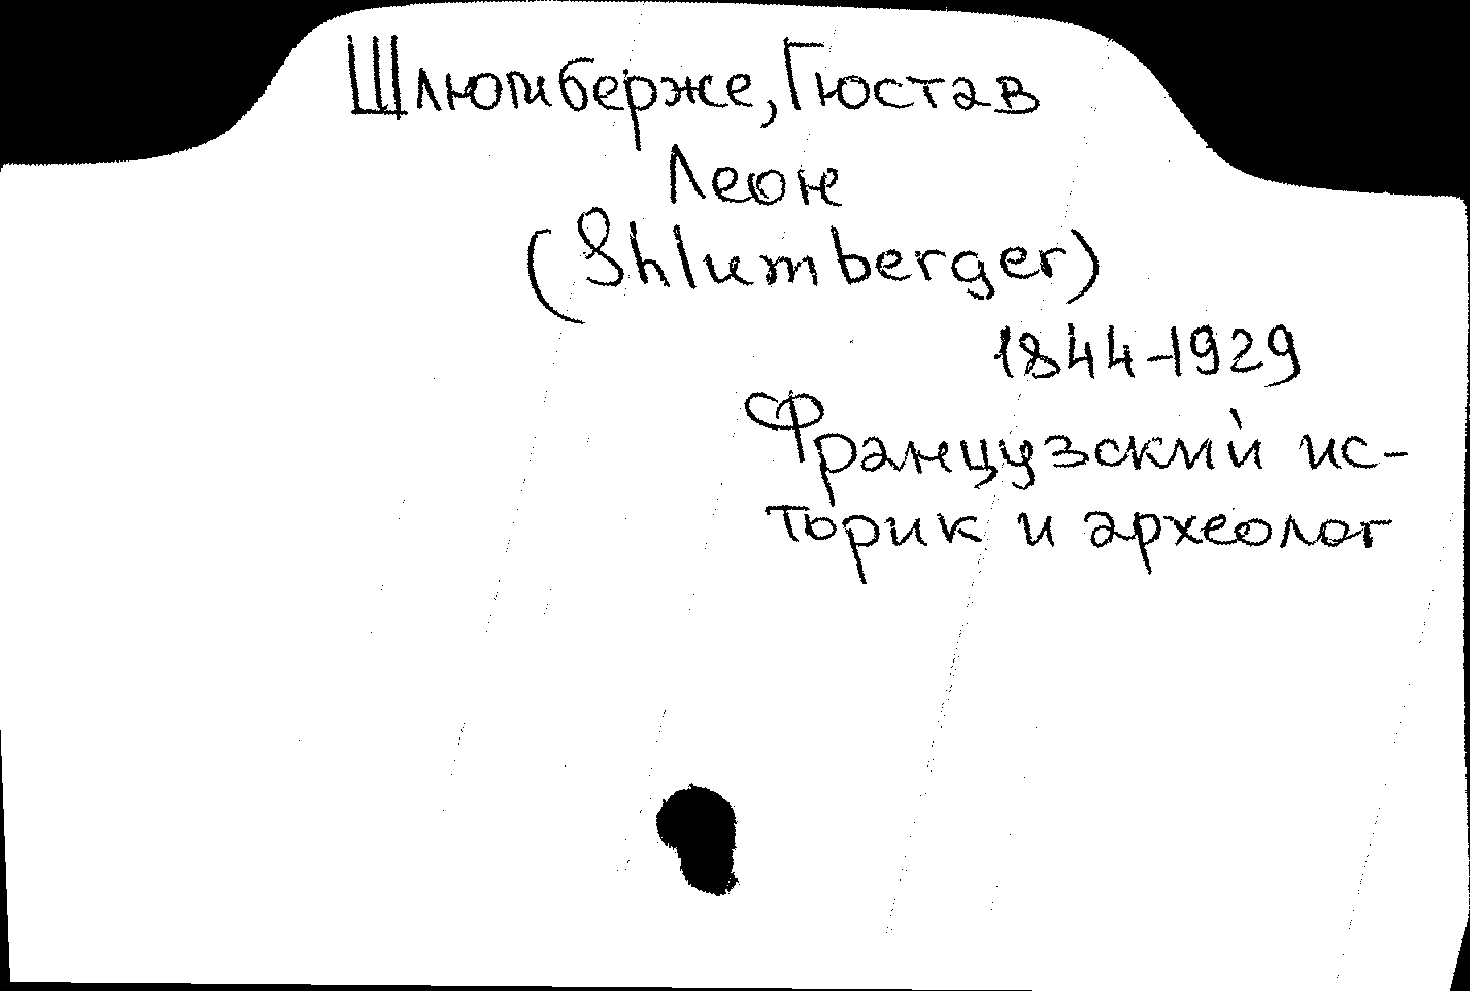 Шлюмберже, Гюстав
Леон
(Shlumberger)
1844-1929
Французский ис-
торик и археолог